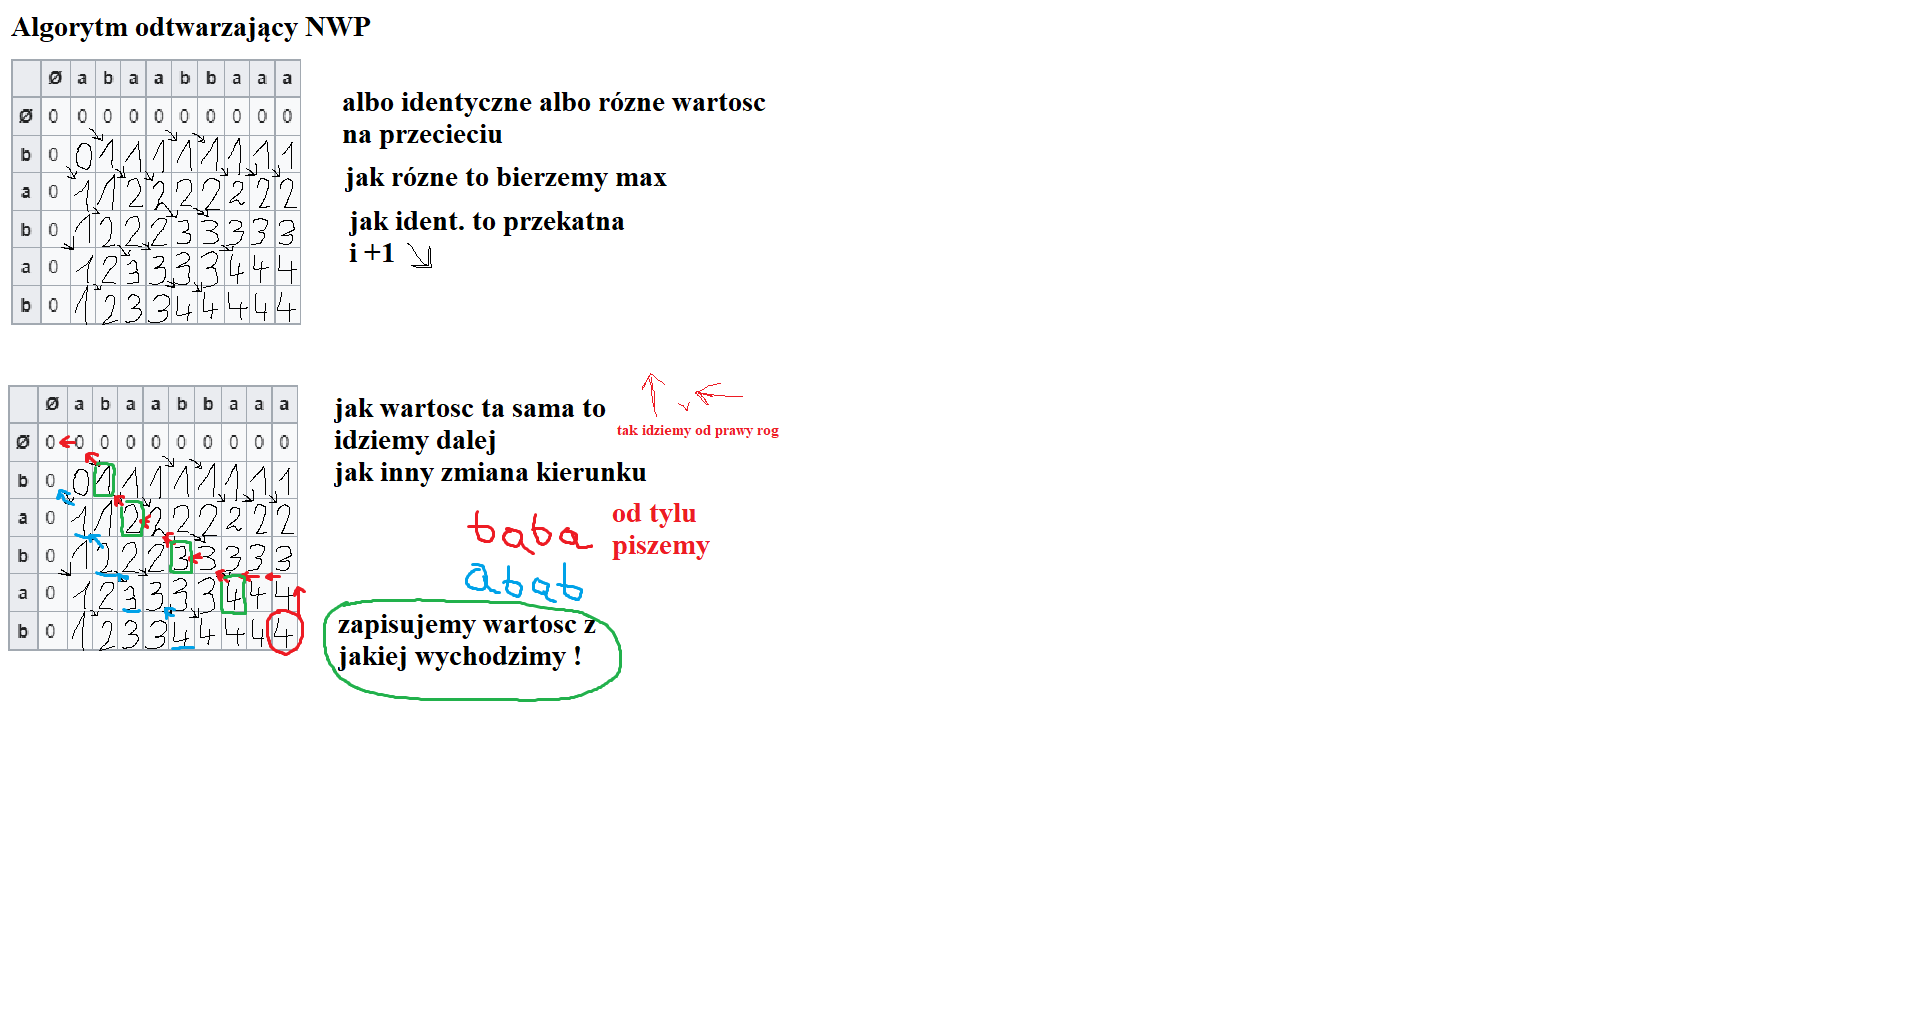 Algorytm odtwarzający NWP
Ø a b a a b b a a a
Ø 0 0 0 0 0 0 0 0 0 0
b 0 0 1 1 1 1 1 1 1 1
a 0 1 1 2 2 2 2 2 2 2
b 0 1 2 2 2 3 3 3 3 3
a 0 1 2 3 3 3 3 4 4 4
b 0 1 2 3 3 4 4 4 4 4
albo identyczne albo rózne wartosc
na przecieciu
jak rózne to bierzemy max
jak ident. to przekatna
i +1
Ø a b a a b b a a a
Ø 0 0 0 0 0 0 0 0 0 0
b 0 0 1 1 1 1 1 1 1 1
a 0 1 1 2 2 2 2 2 2 2
b 0 1 2 2 2 3 3 3 3 3
a 0 1 2 3 3 3 3 4 4 4
b 0 1 2 3 3 4 4 4 4 4
jak wartosc ta sama to
idziemy dalej
jak inny zmiana kierunku
tak idziemy od prawy rog
baba
od tylu
piszemy
abab
zapisujemy wartosc z
jakiej wychodzimy !